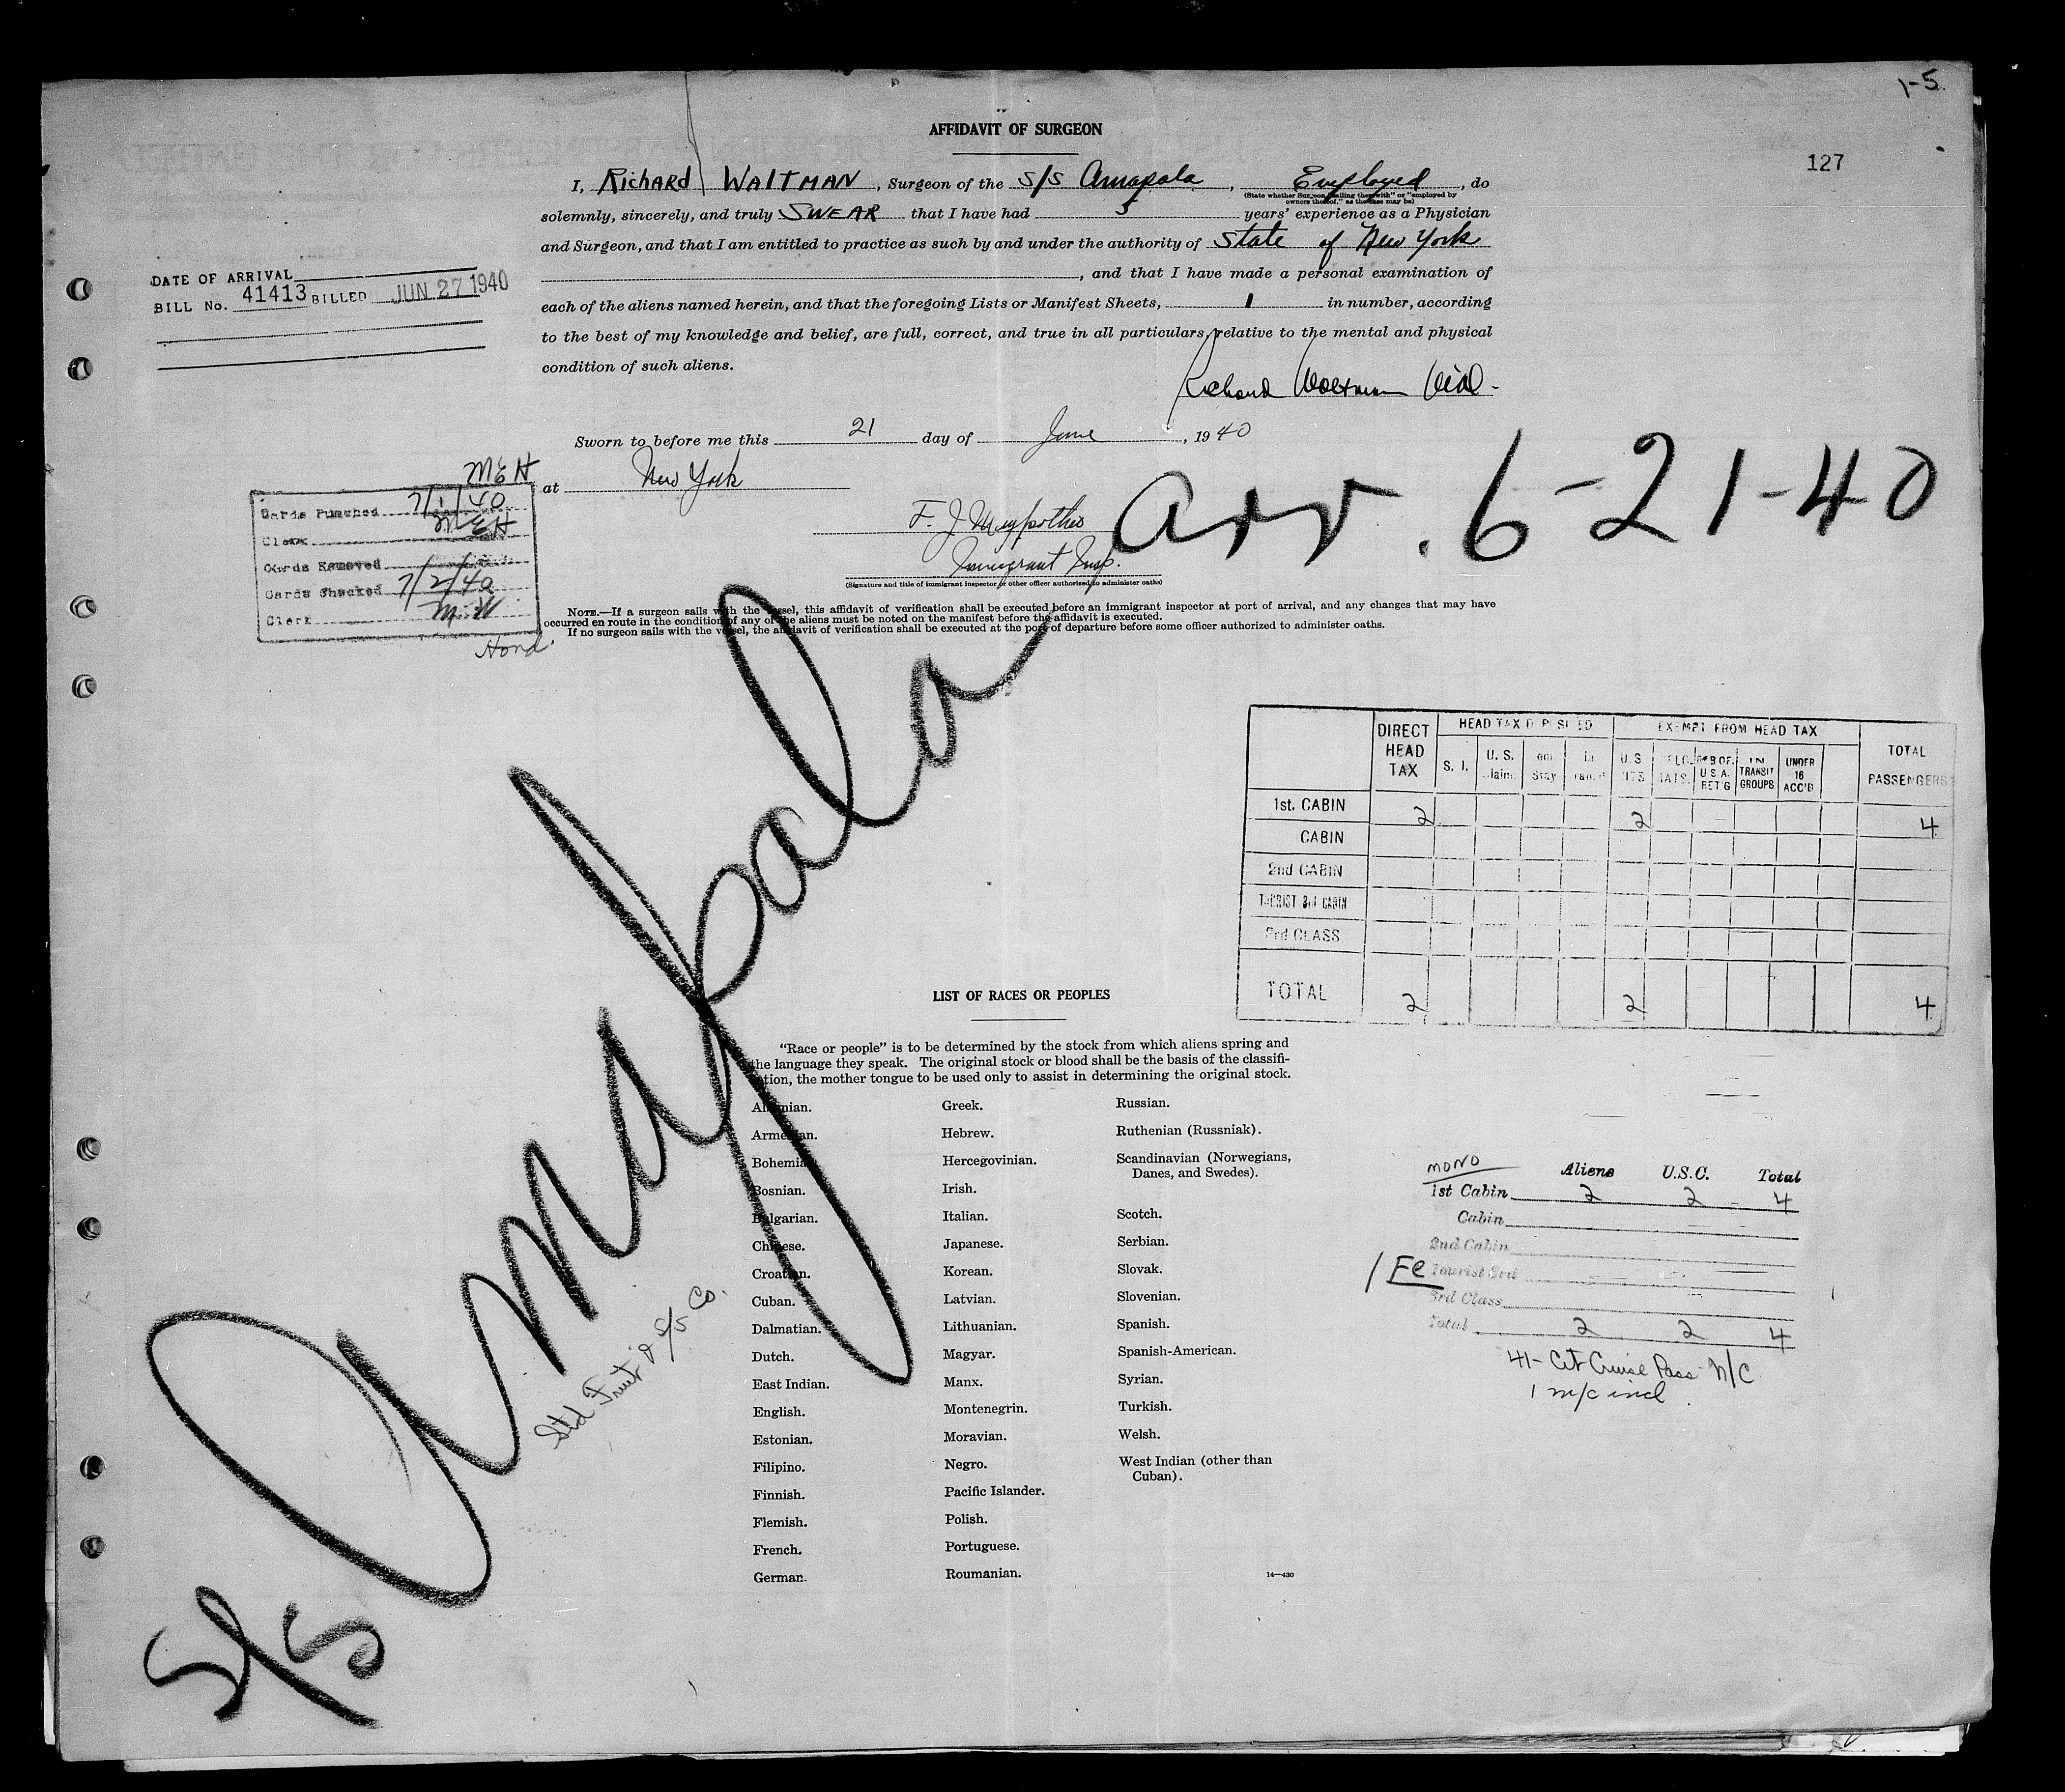 1-5
127
AFFIDAVIT OF SURGEON
I, Richard WAITMAN, Surgeon of the S/S Amapala, Employed, do
(State whether Surgeon "sailing therewith" or "employed by
owners thereof," as the case may be)
solemnly, sincerely, and truly SWEAR that I have had 3 years' experience as a Physician
and Surgeon, and that I am entitled to practice as such by and under the authority of State of New York
, and that I have made a personal examination of
each of the aliens named herein, and that the foregoing Lists or Manifest Sheets, 1 in number, according
to the best of my knowledge and belief, are full, correct, and true in all particulars, relative to the mental and physical
condition of such aliens.
DATE OF ARRIVAL
BILL No. 41413 BILLED JUN 27 1940
Richard
Sworn to before me this 21 day of June, 1940
at New York
F. J.
Immigrant Insp.
(Signature and title of immigrant inspector or other officer authorized to administer oaths)
Arr. 6-21-40
MEH
Cards Punched 7/1/40
Clerk MEH
Cards Removed
Cards Checked 7/2/40
Clerk
Hond.
NOTE.—If a surgeon sails with the vessel, this affidavit of verification shall be executed before an immigrant inspector at port of arrival, and any changes that may have
occurred en route in the condition of any of the aliens must be noted on the manifest before the affidavit is executed.
If no surgeon sails with the vessel, the affidavit of verification shall be executed at the port of departure before some officer authorized to administer oaths.
S/S Amapala
Std Fruit & S/S Co.
DIRECT HEAD TAX
HEAD TAX DEPOSITED
EXEMPT FROM HEAD TAX
TOTAL PASSENGERS
S. I. U. S. Claim Stay U.S. U.S.A. RET'G IN TRANSIT GROUPS UNDER 16 ACC'D
1st. CABIN 2 2 4
CABIN
2nd CABIN
TOURIST 3rd CABIN
3rd CLASS
TOTAL 2 2 4
LIST OF RACES OR PEOPLES
"Race or people" is to be determined by the stock from which aliens spring and
the language they speak. The original stock or blood shall be the basis of the classifi-
cation, the mother tongue to be used only to assist in determining the original stock.
Albanian.
Armenian.
Bohemian.
Bosnian.
Bulgarian.
Chinese.
Croatian.
Cuban.
Dalmatian.
Dutch.
East Indian.
English.
Estonian.
Filipino.
Finnish.
Flemish.
French.
German.
Greek.
Hebrew.
Hercegovinian.
Irish.
Italian.
Japanese.
Korean.
Latvian.
Lithuanian.
Magyar.
Manx.
Montenegrin.
Moravian.
Negro.
Pacific Islander.
Polish.
Portuguese.
Roumanian.
Russian.
Ruthenian (Russniak).
Scandinavian (Norwegians,
Danes, and Swedes).
Scotch.
Serbian.
Slovak.
Slovenian.
Spanish.
Spanish-American.
Syrian.
Turkish.
Welsh.
West Indian (other than
Cuban).
14—430
MONO Aliens U.S.C. Total
1st Cabin 2 2 4
Cabin
2nd Cabin
1 Fe Tourist 3rd
3rd Class
Total 2 2 4
41- Cit Cruise Pass N/C
1 m/c incl